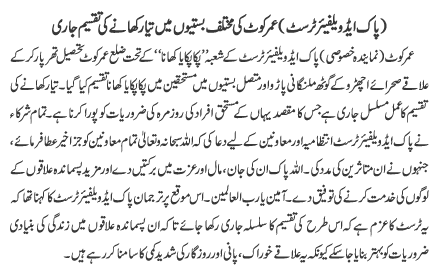 (پاک ایڈ ویلفیئر ٹرسٹ) عمرکوٹ کی مختلف بستیوں میں تیار کھانے کی تقسیم جاری
عمرکوٹ (نمایندہ خصوصی) پاک ایڈ ویلفیئر ٹرسٹ کے شعبہ ’’پکا پکایا کھانا‘‘ کے تحت ضلع عمرکوٹ تحصیل تھر پارکر کے
علاقے صحرائے اچھڑو کے گوٹھ ملنگانی پاڑو اور متصل بستیوں میں مستحقین میں پکا پکایا کھانا تقسیم کیا گیا۔ تیار کھانے کی
تقسیم کا عمل مسلسل جاری ہے جس کا مقصد یہاں کے مستحق افراد کی روزمرہ کی ضروریات کو پورا کرنا ہے۔ تمام شرکاء
نے پاک ایڈ ویلفیئر ٹرسٹ انتظامیہ اور معاونین کے لیے دعا کی کہ اللہ سبحانہ وتعالیٰ تمام معاونین کو جزائے خیر عطا فرمائے،
جنہوں نے ان متاثرین کی مدد کی۔ اللہ پاک ان کی جان، مال اور عزت میں برکتیں دے اور مزید پسماندہ علاقوں کے
لوگوں کی خدمت کرنے کی توفیق دے۔ آمین یارب العالمین۔ اس موقع پر ترجمان پاک ایڈ ویلفیئر ٹرسٹ کا کہنا تھا کہ
یہ ٹرسٹ کا عزم ہے کہ اس طرح کی تقسیم کا سلسلہ جاری رکھا جائے تاکہ ان پسماندہ علاقوں میں زندگی کی بنیادی
ضروریات کو بہتر بنایا جاسکے کیونکہ یہ علاقے خوراک، پانی اور روزگار کی شدید کمی کا سامنا کر رہے ہیں۔